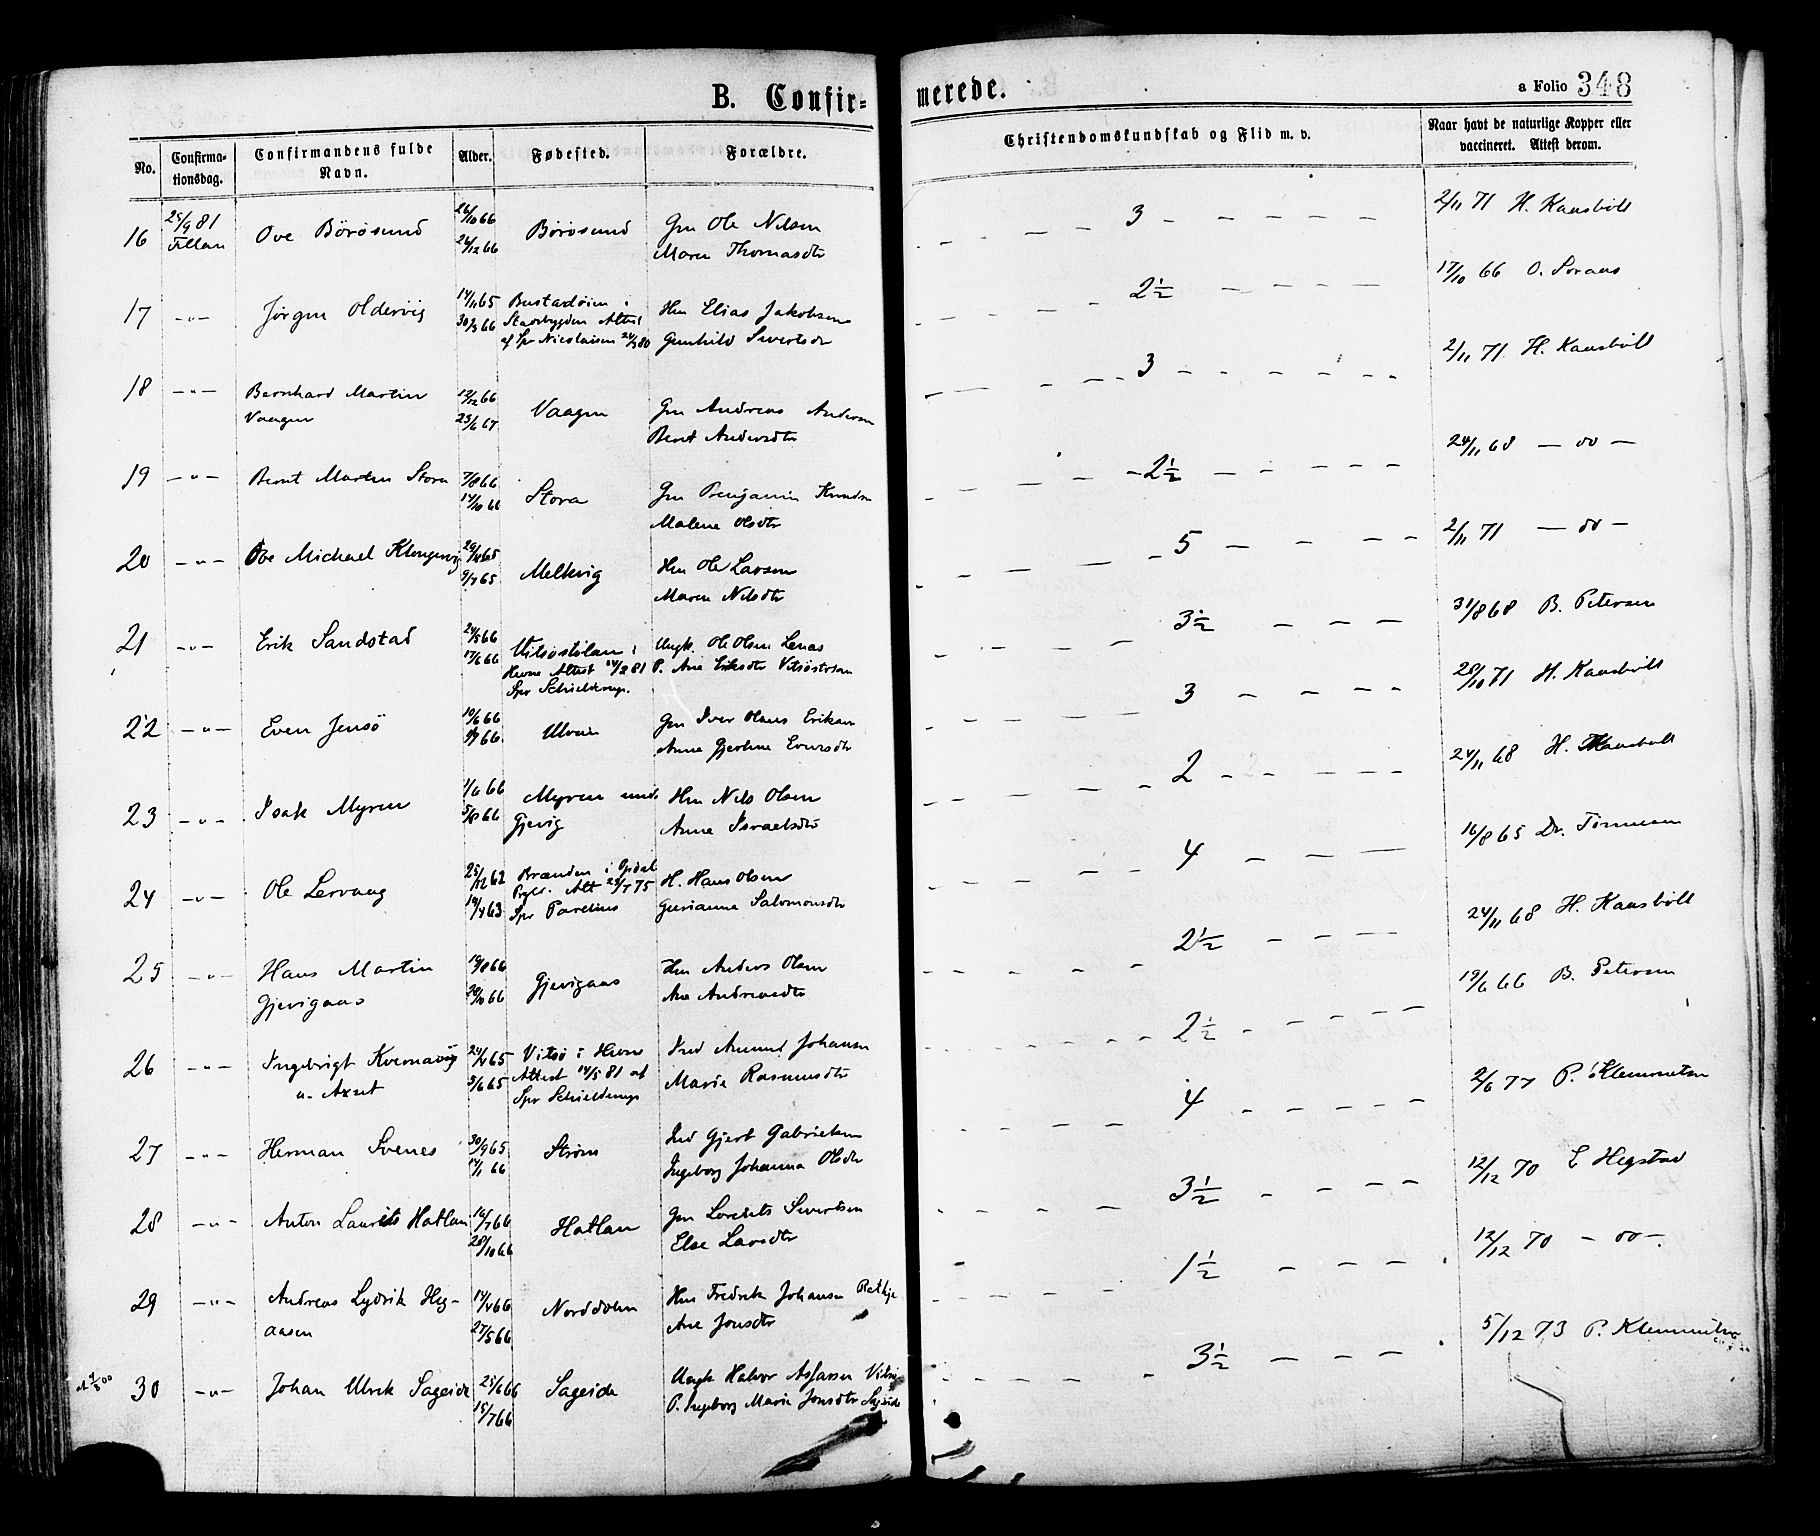 B. Confir-
merede.
a Folio 348
No.
Confirma-
tionsdag.
Confirmandens fulde
Navn.
Alder.
Fødested.
Forældre.
Christendomskundskab og Flid m. v.
Naar havt de naturlige Kopper eller
vaccineret. Attest derom.
16 25/9 81 Fillan Ove Börösund 26/10 66 26/12 66 Börösund Gm Ole Nilsen
Maren Thomasdtr
3 - - - - - 2/11 71 H. Kaasböll
17 -"- Jörgen Oldervig 14/11 65 30/3 66 Bustadöien i
Stadsbygden Attest
af Spr Nicolaisen 24/3 80
Hm Elias Jakobsen
Gunhild Sivertsdr
2½ - - - - 17/10 66 O. Soraas
18 -"- Bernhard Martin
Vaagen
13/12 66 23/6 67 Vaagen Gm Andreas Andersen
Berit Andersdtr
3 - - - - - 2/11 71 H. Kaasböll
19 -"- Bernt Martin Stora 7/8 66 14/10 66 Stora Gm Benjamin Knudsn
Malene Olsdtr
2½ - - - - - 24/11 68 - oo -
20 -"- Ove Michael Klengervig 5/7 65 Melkvig Hm Ole Larsen
Maren Nilsdtr
5 - - - - 2/11 71 - oo -
21 -"- Erik Sandstad 24/5 66 17/6 66 Vitsöstölan i
Hevne Attest 14/2 81
Spr Schielderup.
Ungk. Ole Olsen Lenas
P. Ane Eriksdtr Vitsöstölan
3½ - - - - 31/8 68 B. Petersen
22 -"- Even Jensö 10/6 66 Ulvan Gm Iver Olaus Eriksen
Anne Gjertine Evensdtr
3 - - - - 28/10 71 H. Kaasböll
23 -"- Isak Myren 1/6 66 5/8 66 Myren und.
Gjevig
Hm Nils Olsen
Anne Israelsdtr
2 - - - - - 24/11 68 H. Kaasböll
24 -"- Ole Lervaag 25/12 62 19/4 63 Brænden i Opdal
Prgld. Att 22/7 75
Spr Parelius
H. Hans Olsen
Gurianna Salomonsdtr
4 - - - 16/8 65 Dr. Tönnesen
25 -"- Hans Martin
Gjevigaas
19/8 66 Gjevigaas Hm Anders Olsen
Ane Andreasdtr
2½ - - - 24/11 68 H. Kaasböll
26 -"- Ingebrigt Kvernavig
u. Axnet
24/4 65 5/6 65 Vitsö i Hevne
Attest 14/5 81 af
Spr Schielderup
Ind Amund Johansen
Marie Rasmusdtr
2½ - - - - - 19/6 66 B. Petersen
27 -"- Herman Svenes 30/9 65 14/1 66 Ström Ind Gjert Gabrielsen
Ingeborg Johanna Olsdtr
4 - - - - - 2/6 77 P. Klemmetsen
28 -"- Anton Laurits Hatlan 16/7 66 28/10 66 Hatlan Gm Lorents Sivertsen
Else Larsdtr
3½ - - - - 12/12 70 E Hegstad
29 -"- Andreas Lydrik Heg-
aasen
14/4 66 27/5 66 Norddolm Hm Fredrik Johansen Ratkje
Ane Jonsdtr
1½ - - - - 12/12 70 - oo -
30 -"- Johan Ulrik Sageide 25/6 66 15/7 66 Sageide Ungk Halvor Assersen
P. Ingeborg Marie Jonsdtr Sageide
3½ - - - - 5/12 73 P. Klemmetsen